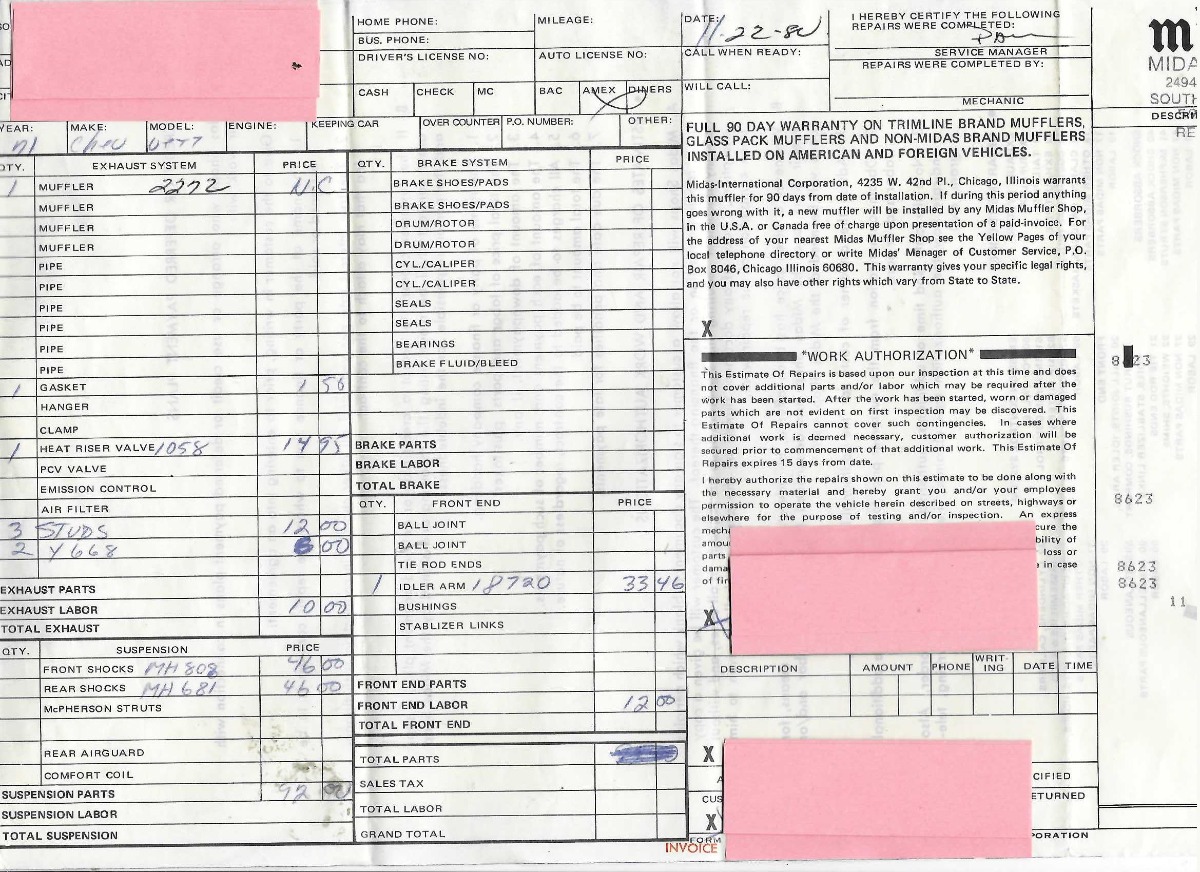 HOME PHONE:
MILEAGE:
DATE: 11-22-80
I HEREBY CERTIFY THE FOLLOWING
REPAIRS WERE COMPLETED:
SERVICE MANAGER
BUS. PHONE:
DRIVER'S LICENSE NO:
AUTO LICENSE NO:
CALL WHEN READY:
REPAIRS WERE COMPLETED BY:
CASH CHECK MC BAC AMEX DINERS
WILL CALL:
MECHANIC
m
MIDA
2494
SOUTH
DESCRI
RE
YEAR: MAKE: MODEL: ENGINE: KEEPING CAR OVER COUNTER P.O. NUMBER: OTHER:
71 Chev
QTY. EXHAUST SYSTEM PRICE
1 MUFFLER 2272 N.C
MUFFLER
MUFFLER
MUFFLER
PIPE
PIPE
PIPE
PIPE
PIPE
PIPE
1 GASKET 1 50
HANGER
CLAMP
1 HEAT RISER VALVE 1058 14 95
PCV VALVE
EMISSION CONTROL
AIR FILTER
3 STUDS 12 00
2 Y668 6 00
EXHAUST PARTS
EXHAUST LABOR 10 00
TOTAL EXHAUST
QTY. SUSPENSION PRICE
FRONT SHOCKS MH 808 46 00
REAR SHOCKS MH 681 46 00
McPHERSON STRUTS
REAR AIRGUARD
COMFORT COIL
SUSPENSION PARTS 92 00
SUSPENSION LABOR
TOTAL SUSPENSION
QTY. BRAKE SYSTEM PRICE
BRAKE SHOES/PADS
BRAKE SHOES/PADS
DRUM/ROTOR
DRUM/ROTOR
CYL./CALIPER
CYL./CALIPER
SEALS
SEALS
BEARINGS
BRAKE FLUID/BLEED
BRAKE PARTS
BRAKE LABOR
TOTAL BRAKE
QTY. FRONT END PRICE
BALL JOINT
BALL JOINT
TIE ROD ENDS
1 IDLER ARM 18720 33 46
BUSHINGS
STABLIZER LINKS
FRONT END PARTS
FRONT END LABOR 12 00
TOTAL FRONT END
TOTAL PARTS
SALES TAX
TOTAL LABOR
GRAND TOTAL
FULL 90 DAY WARRANTY ON TRIMLINE BRAND MUFFLERS,
GLASS PACK MUFFLERS AND NON-MIDAS BRAND MUFFLERS
INSTALLED ON AMERICAN AND FOREIGN VEHICLES.
Midas-International Corporation, 4235 W. 42nd Pl., Chicago, Illinois warrants
this muffler for 90 days from date of installation. If during this period anything
goes wrong with it, a new muffler will be installed by any Midas Muffler Shop,
in the U.S.A. or Canada free of charge upon presentation of a paid-invoice. For
the address of your nearest Midas Muffler Shop see the Yellow Pages of your
local telephone directory or write Midas' Manager of Customer Service, P.O.
Box 8046, Chicago Illinois 60680. This warranty gives your specific legal rights,
and you may also have other rights which vary from State to State.
X
"WORK AUTHORIZATION"
This Estimate Of Repairs is based upon our inspection at this time and does
not cover additional parts and/or labor which may be required after the
work has been started. After the work has been started, worn or damaged
parts which are not evident on first inspection may be discovered. This
Estimate Of Repairs cannot cover such contingencies. In cases where
additional work is deemed necessary, customer authorization will be
secured prior to commencement of that additional work. This Estimate Of
Repairs expires 15 days from date.
I hereby authorize the repairs shown on this estimate to be done along with
the necessary material and hereby grant you and/or your employees
permission to operate the vehicle herein described on streets, highways or
elsewhere for the purpose of testing and/or inspection. An express
mech cure the
amou bility of
parts loss or
dama e in case
of fir
X
DESCRIPTION AMOUNT PHONE WRIT-ING DATE TIME
X
CIFIED
CUS ETURNED
X
FORM ORPORATION
INVOICE
8 23
8623
8623
8623
11